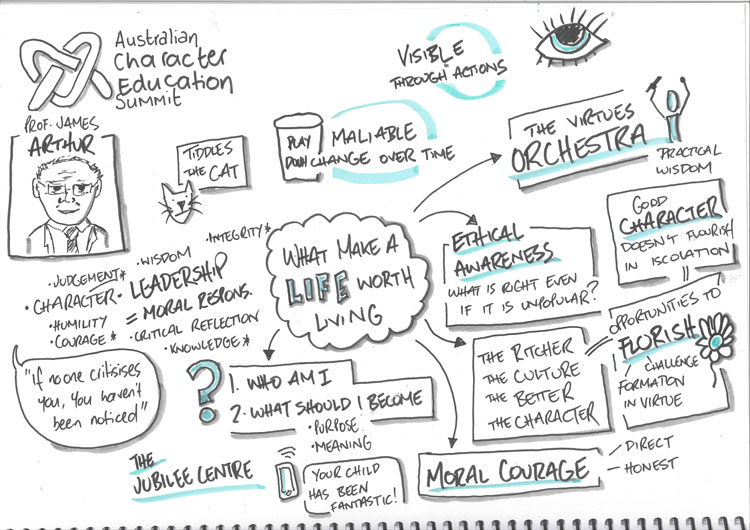 Australian
Character
Education
Summit
PROF. JAMES
ARTHUR
TIDDLES
THE CAT
PLAY
DOWN
MALIABLE
CHANGE OVER TIME
VISIBLE
THROUGH ACTIONS
THE VIRTUES
ORCHESTRA
PRACTICAL
WISDOM
GOOD
CHARACTER
DOESN'T FLOURISH
IN ISCOLATION
ETHICAL
AWARENESS
WHAT IS RIGHT EVEN
IF IT IS UNPOPULAR?
WHAT MAKE A
LIFE WORTH
LIVING
• INTEGRITY*
• WISDOM
• JUDGEMENT*
• CHARACTER • LEADERSHIP
= MORAL RESPONS.
• HUMILITY
• COURAGE *
• CRITICAL REFLECTION
• KNOWLEDGE *
"if no one critisises
you, you haven't
been noticed"
?
1. WHO AM I
2. WHAT SHOULD I BECOME
• PURPOSE
• MEANING
THE RITCHER
THE CULTURE
THE BETTER
THE CHARACTER
OPPORTUNITIES TO
FLORISH
CHALLENGE
FORMATION
IN VIRTUE
THE
JUBILEE CENTRE
YOUR CHILD
HAS BEEN
FANTASTIC!
MORAL COURAGE
– DIRECT
– HONEST